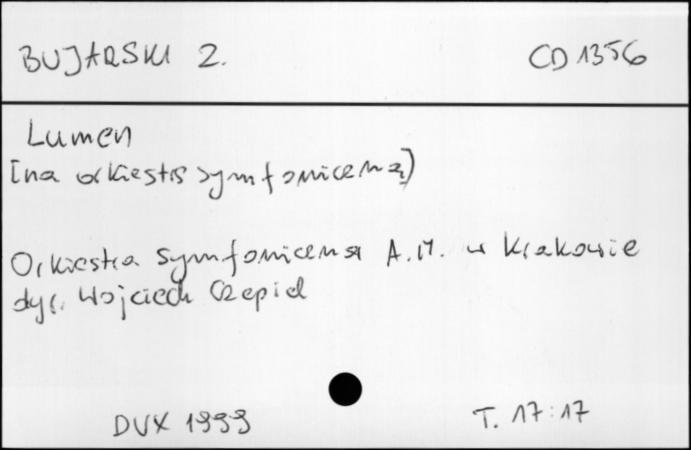 BUJARSKI Z.
CD 1356
Lumen
[na orkiestrę symfoniczną)
Orkiestra symfoniczna A.M. w Krakowie
dyr. Wojciech Czepiel
DUX 1999
T. 17:17